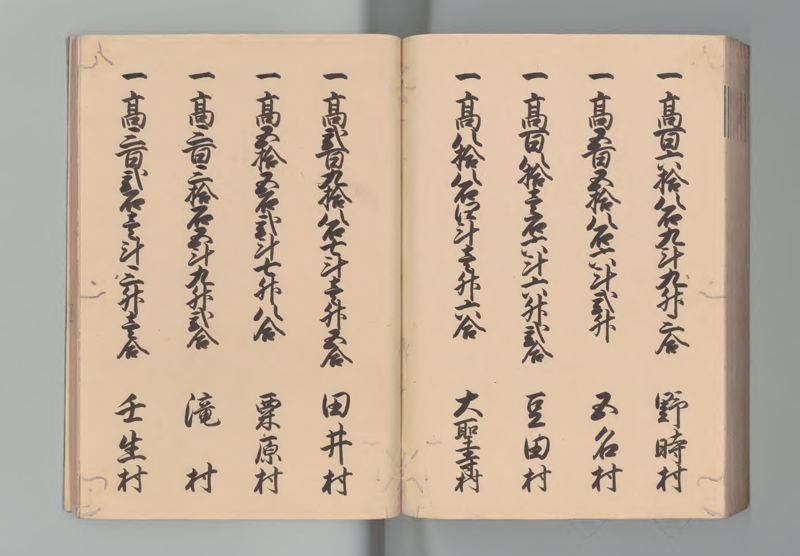 一 高百六拾八石九斗九升三合 野時村
一 高五百五拾八石六斗弐升 五名村
一 高百八拾壱石六斗六升弐合 豆田村
一 高八拾八石四斗壱升六合 大聖寺村
一 高弐百九拾八石七斗壱升五合 田井村
一 高五拾五石弐斗七升八合 栗原村
一 高三百三拾石五斗九升弐合 滝村
一 高三百弐石壱斗三升壱合 壬生村